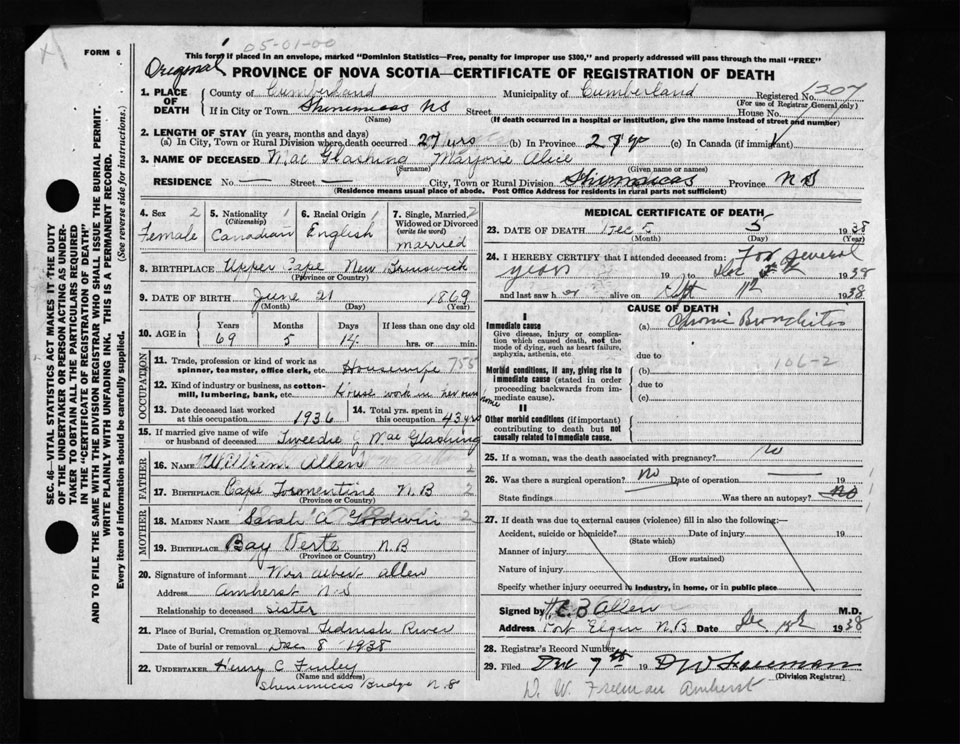 FORM 6
05-01-00
This form if placed in an envelope, marked "Dominion Statistics—Free, penalty for improper use $300," and properly addressed will pass through the mail "FREE"
Original
PROVINCE OF NOVA SCOTIA—CERTIFICATE OF REGISTRATION OF DEATH
SEC. 46—VITAL STATISTICS ACT MAKES IT THE DUTY
OF THE UNDERTAKER OR PERSON ACTING AS UNDER-
TAKER TO OBTAIN ALL THE PARTICULARS REQUIRED
IN THE "CERTIFICATE OF REGISTRATION OF DEATH"
AND TO FILE THE SAME WITH THE DIVISION REGISTRAR WHO SHALL ISSUE THE BURIAL PERMIT.
WRITE PLAINLY WITH UNFADING INK. THIS IS A PERMANENT RECORD.
Every item of information should be carefully supplied. (See reverse side for instructions.)
1. PLACE OF DEATH County of Cumberland Municipality of Cumberland Registered No. 1207
(For use of Registrar General only)
If in City or Town Shinimicas NS Street House No.
(Name) (If death occurred in a hospital or institution, give the name instead of street and number)
2. LENGTH OF STAY (in years, months and days)
(a) In City, Town or Rural Division where death occurred 27 yrs (b) In Province 27 yrs (c) In Canada (if immigrant)
3. NAME OF DECEASED Mac Glashing Marjorie Alice
(Surname) (Given name or names)
RESIDENCE No. — Street — City, Town or Rural Division Shinimicas Province N S
(Residence means usual place of abode. Post Office Address for residents in rural parts not sufficient)
4. Sex 2 Female
5. Nationality (Citizenship) 1 Canadian
6. Racial Origin 1 English
7. Single, Married, Widowed or Divorced (write the word) 2 married
8. BIRTHPLACE Upper Cape New Brunswick
(Province or Country)
9. DATE OF BIRTH June 21 1869
(Month) (Day) (Year)
10. AGE in Years 69 Months 5 Days 14 If less than one day old hrs. or min.
OCCUPATION
11. Trade, profession or kind of work as spinner, teamster, office clerk, etc. Housewife 755
12. Kind of industry or business, as cotton-mill, lumbering, bank, etc. House work in her own home
13. Date deceased last worked at this occupation 1936 14. Total yrs. spent in this occupation 43 yrs
15. If married give name of wife or husband of deceased Tweedie J Mac Glashing
FATHER
16. NAME William Allen
17. BIRTHPLACE Cape Tormentine N.B 2
(Province or Country)
MOTHER
18. MAIDEN NAME Sarah A Goodwin 2
19. BIRTHPLACE Bay Verte N.B
(Province or Country)
20. Signature of informant Mrs Albert Allen
Address Amherst N S
Relationship to deceased sister
21. Place of Burial, Cremation or Removal Tidnish River
Date of burial or removal Dec 8 1938
22. UNDERTAKER Henry C Finley
(Name and address)
Shinimicas Bridge N.S
MEDICAL CERTIFICATE OF DEATH
23. DATE OF DEATH Dec 5 5 1938
(Month) (Day) (Year)
24. I HEREBY CERTIFY that I attended deceased from For several
years 19 to Dec 1938
and last saw her alive on Sept 11th 1938
CAUSE OF DEATH
I
Immediate cause (a) Chronic Bronchitis
Give disease, injury or complication which caused death, not the mode of dying, such as heart failure, asphyxia, asthenia, etc.
due to
106-2
Morbid conditions, if any, giving rise to immediate cause (stated in order proceeding backwards from immediate cause). (b)
due to
(c)
II
Other morbid conditions (if important) contributing to death but not causally related to immediate cause.
25. If a woman, was the death associated with pregnancy? no
26. Was there a surgical operation? no Date of operation 19
State findings Was there an autopsy? no
27. If death was due to external causes (violence) fill in also the following:—
Accident, suicide or homicide? Date of injury 19
(State which)
Manner of injury
(How sustained)
Nature of injury
Specify whether injury occurred in industry, in home, or in public place
Signed by H. C. B Allen M.D.
Address Port Elgin N.B Date Dec 1938
28. Registrar's Record Number
29. Filed Dec 7th 19 D W Freeman
(Division Registrar)
D. W. Freeman Amherst